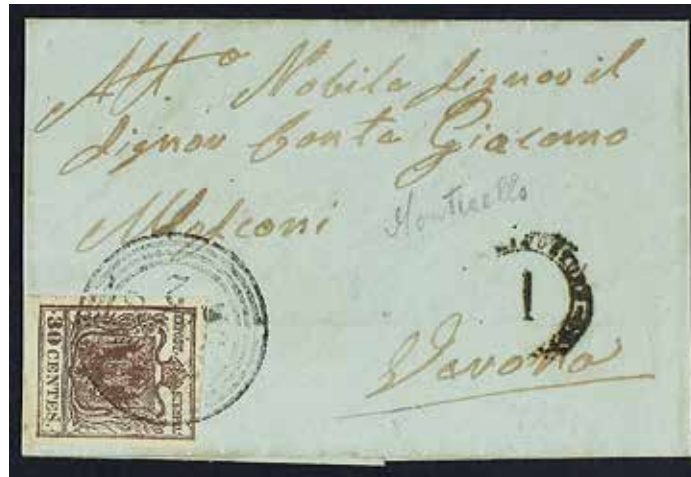 All.º Nobile Signor il
Signor Conte Giacomo
Mosconi
Monticello
1
Verona
30 CENTES.